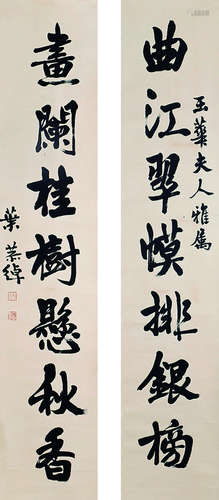 曲江翠幙排銀榜
玉華夫人雅屬
畫闌桂樹懸秋香
葉恭綽